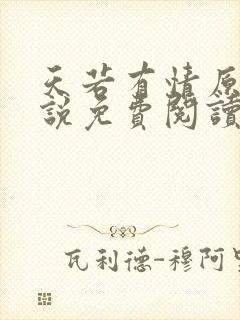 天若有情原
說免費閱讀
瓦利德-穆阿